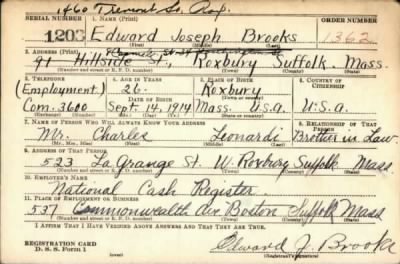 1460 Tremont St. Rox.
SERIAL NUMBER 1. NAME (Print) ORDER NUMBER
1203 Edward Joseph Brooks 1362
(First) (Middle) (Last)
2. ADDRESS (Print)
91 Hillside St., Roxbury Suffolk Mass.
(Number and street or R. F. D. number) (Town) (County) (State)
3. TELEPHONE 4. AGE IN YEARS 5. PLACE OF BIRTH 6. COUNTRY OF CITIZENSHIP
(Employment) 26. Roxbury
DATE OF BIRTH (Town or county)
Com. 3600 Sept. 14, 1914 Mass. U.S.A. U.S.A.
(Exchange) (Number) (Mo.) (Day) (Yr.) (State or country)
7. NAME OF PERSON WHO WILL ALWAYS KNOW YOUR ADDRESS 8. RELATIONSHIP OF THAT PERSON
Mr. Charles Leonardi Brother in Law.
(Mr., Mrs., Miss) (First) (Middle) (Last)
9. ADDRESS OF THAT PERSON
523 La Grange St. W. Roxbury Suffolk Mass.
(Number and street or R. F. D. number) (Town) (County) (State)
10. EMPLOYER'S NAME
National Cash Register.
11. PLACE OF EMPLOYMENT OR BUSINESS
537 Commonwealth Av Boston Suffolk Mass
(Number and street or R. F. D. number) (Town) (County) (State)
I AFFIRM THAT I HAVE VERIFIED ABOVE ANSWERS AND THAT THEY ARE TRUE.
REGISTRATION CARD
D. S. S. Form 1 (over) Edward J. Brooks